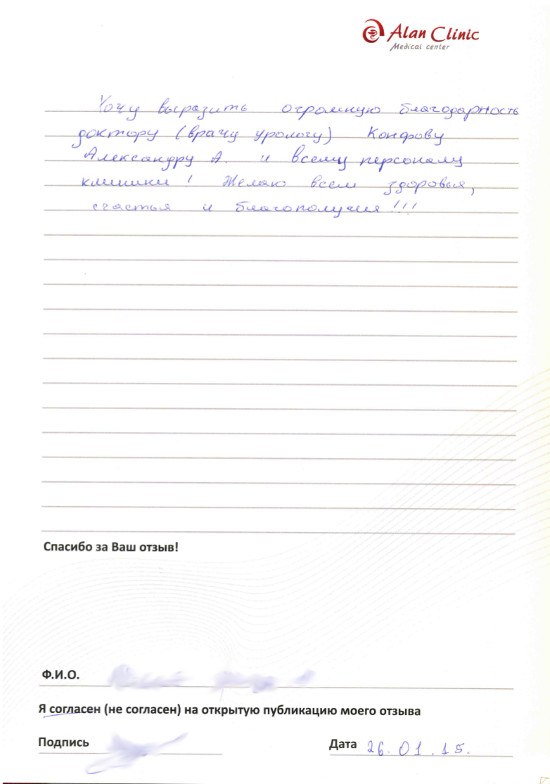 Alan Clinic
Medical center
Хочу выразить огромную благодарность
доктору (врачу урологу) Конфову
Александру А. и всему персоналу
клиники! Желаю всем здоровья,
счастья и благополучия!!!
Спасибо за Ваш отзыв!
Ф.И.О.
Я согласен (не согласен) на открытую публикацию моего отзыва
Подпись
Дата 26.01.15.